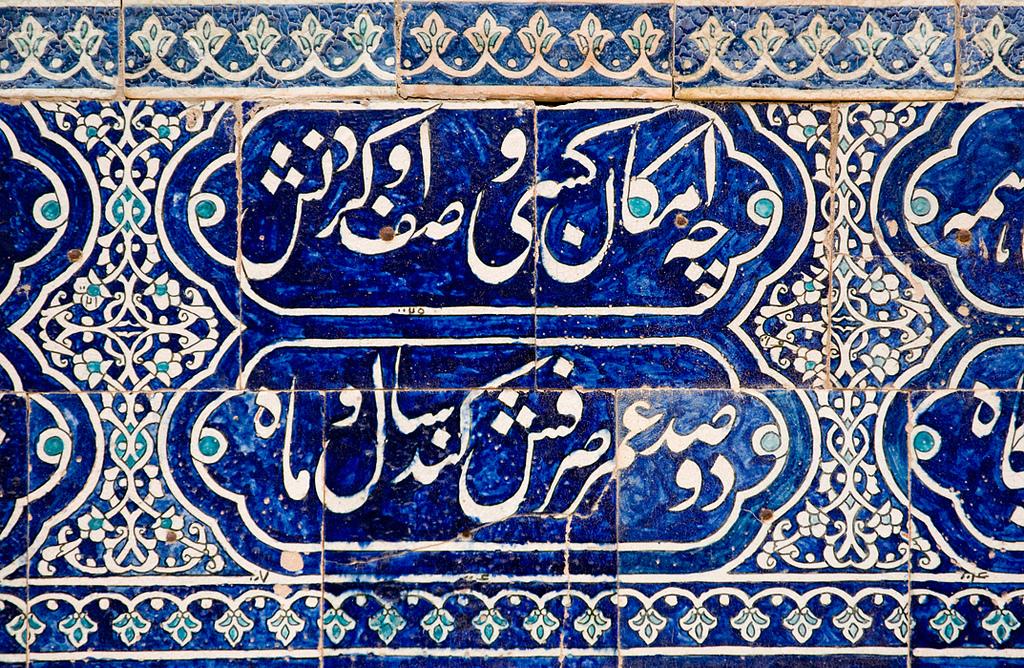 همه
چه امکان کسی وصف او کردنش
دو صد عمر صرفش کند سال و ماه